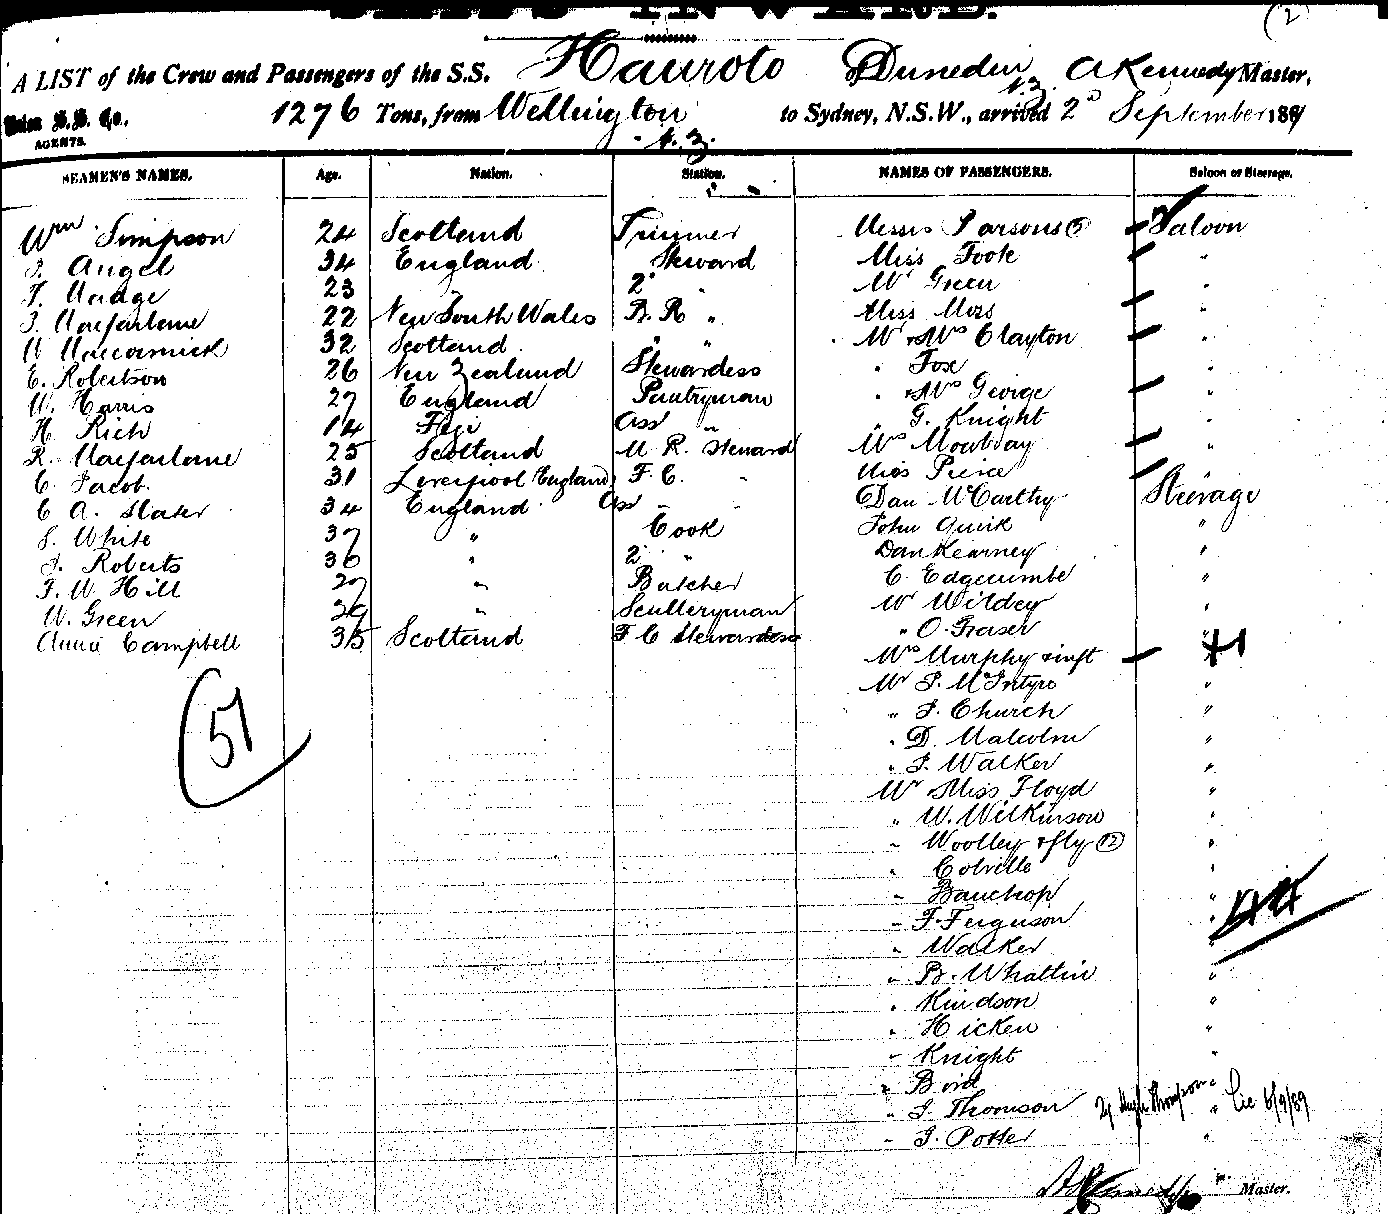 (2)
A LIST of the Crew and Passengers of the S.S. Hauroto of Dunedin N.Z. A Kennedy Master,
Union S.S. Co., 1276 Tons, from Wellington N.Z. to Sydney, N.S.W., arrived 2d September 1889
AGENTS.
SEAMEN'S NAMES. Age. Nation. Station. NAMES OF PASSENGERS. Saloon or Steerage.
Wm Simpson 24 Scotland Trimmer Messrs Parsons Saloon
J. Angel 34 England Steward Miss Took "
T. Madge 23 " 2 " Mr Green "
J. Macfarlane 22 New South Wales B. R " Miss Moss "
W Maccormick 32 Scotland " " Mr & Mrs Clayton "
E. Robertson 26 New Zealand Stewardess " Fox "
W. Harris 27 England Pantryman " & Mrs George "
H Rich 14 Fiji Ass " " G. Knight "
R. Macfarlane 25 Scotland M. R. Steward Mrs Mowbray "
C. Jacob 31 Liverpool England F. C. " Miss Peirce "
C A. Slater 34 England Ass " Dan McCarthy Steerage
S. White 37 " Cook John Quirk "
J. Roberts 36 " 2 " Dan Kearney "
F. W. Hill 27 " Butcher C. Edgecumbe "
W. Green 29 " Sculleryman Mr Wildey "
Annie Campbell 35 Scotland F C Stewardess " O. Fraser "
Mrs Murphy & inft "
Mr J. McIntyre "
" J. Church "
" D. Malcolm "
" J. Walker "
Mr & Miss Floyd "
" W. Wilkinson "
" Woolley & fly (12) "
" Colville "
" Bauchop "
" F. Ferguson "
" Walker "
" B. Whattin "
" Hudson "
" Hicken "
" Knight "
" Bird "
" J. Thomson Hugh Thompson " 6/9/89
" J. Potter "
51
A Kennedy Master.